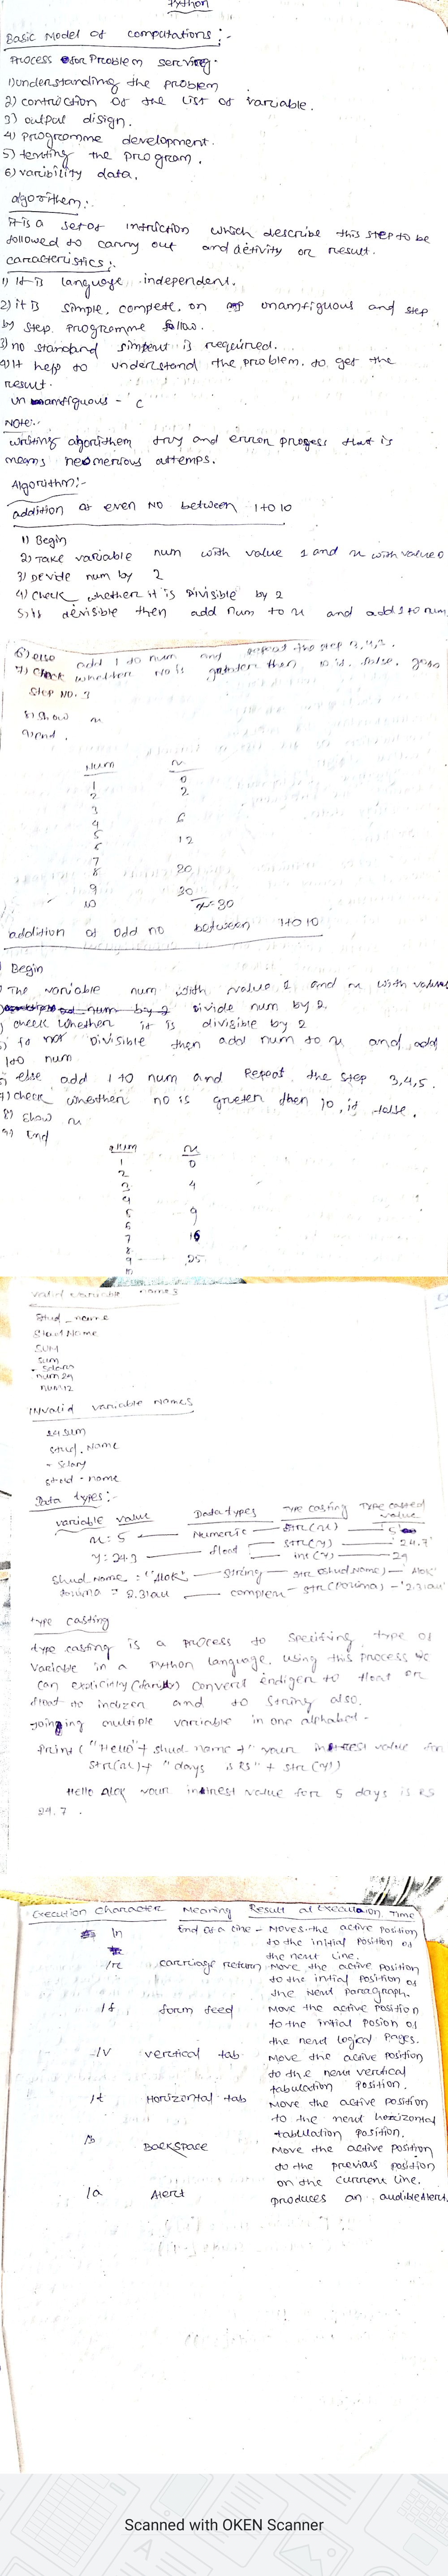 Python
Basic Model of computations :-
Process for Problem serving.
1) understanding the problem
2) contruction of the list of variable.
3) output disign.
4) programme development.
5) testing the program.
6) varibility data.
algorithem :-
it is a set of intruction which describe this step to be
followed to carry out and activity or result.
caracteristics :-
1) It is language independent.
2) it is simple, compete, on unamfiguous and step
by step programme follow.
3) no standard simpent is required.
4) It help to understand the problem. to get the
result.
un amfiguous - C
NOTE:-
writing algorithem trry and error progess that is
means neomerious attemps.
Algorithm :-
addition of even NO between 1 to 10
1) Begin
2) Take variable num with value 1 and x with value 0
3) Devide num by 2
4) Check whether it is Divisible by 2
5) is devisible then add num to x and add 1 to num
6) else add 1 to num and repeat the step
7) Check whether no is then 10 is false. goto
Step NO. 3
8) show x
9) end.
Num x
1 0
2 2
3
4 6
5
6 12
7
8 20
9 30
10 x = 30
addition of odd no between 1 to 10
Begin
The variable num with value 1 and x with value
num by 2 Divide num by 2.
check whether it is divisible by 2
not Divisible then add num to x and add
1 to num
else add 1 to num and Repeat the step 3,4,5.
7) check whether no is then 10, if false.
8) Show x
9) End
num x
1 0
2
3 4
4
5 9
6
7 16
8
9 25
10
valid variable names
Stud_name
Stud Name
SUM
sum
num 29
num12
Invalid variable names
sum
stud. Name
stud - name
Data types :-
variable value Data types Type casting Type casted
value
x: 5 Numeric str(x) '5'
y: 24.7 float str(y) '24.7'
int (y) 24
stud Name = "Alok" String str (stud Name) "Alok"
complex
Type casting
type casting is a process to specifying type of
variable in a Python language. using this process we
can explicitly convert to float or
float to and to string also.
joinging multiple variable in one alphabet -
Print ("Hello" + stud-name + " your intrest value for
str(x) + "days is Rs" + str (y))
Hello Alok your intrest value for 5 days is RS
24.7.
Execution Character Meaning Result at Execution Time
\n End of a line - Moves the active position
to the initial position of
the next line.
/r carriage return Move the active position
to the intial position of
the next Paragraph.
/f form feed Move the active position
to the intial Posion of
the next logical Pages.
/v vertical tab Move the active position
to the next vertical
tabulation position.
/t Horizontal tab Move the active position
to the next horizontal
tabulation position.
/b Backspace Move the active position
to the previous position
on the current line.
/a Alert produces an audible Alert.
Scanned with OKEN Scanner